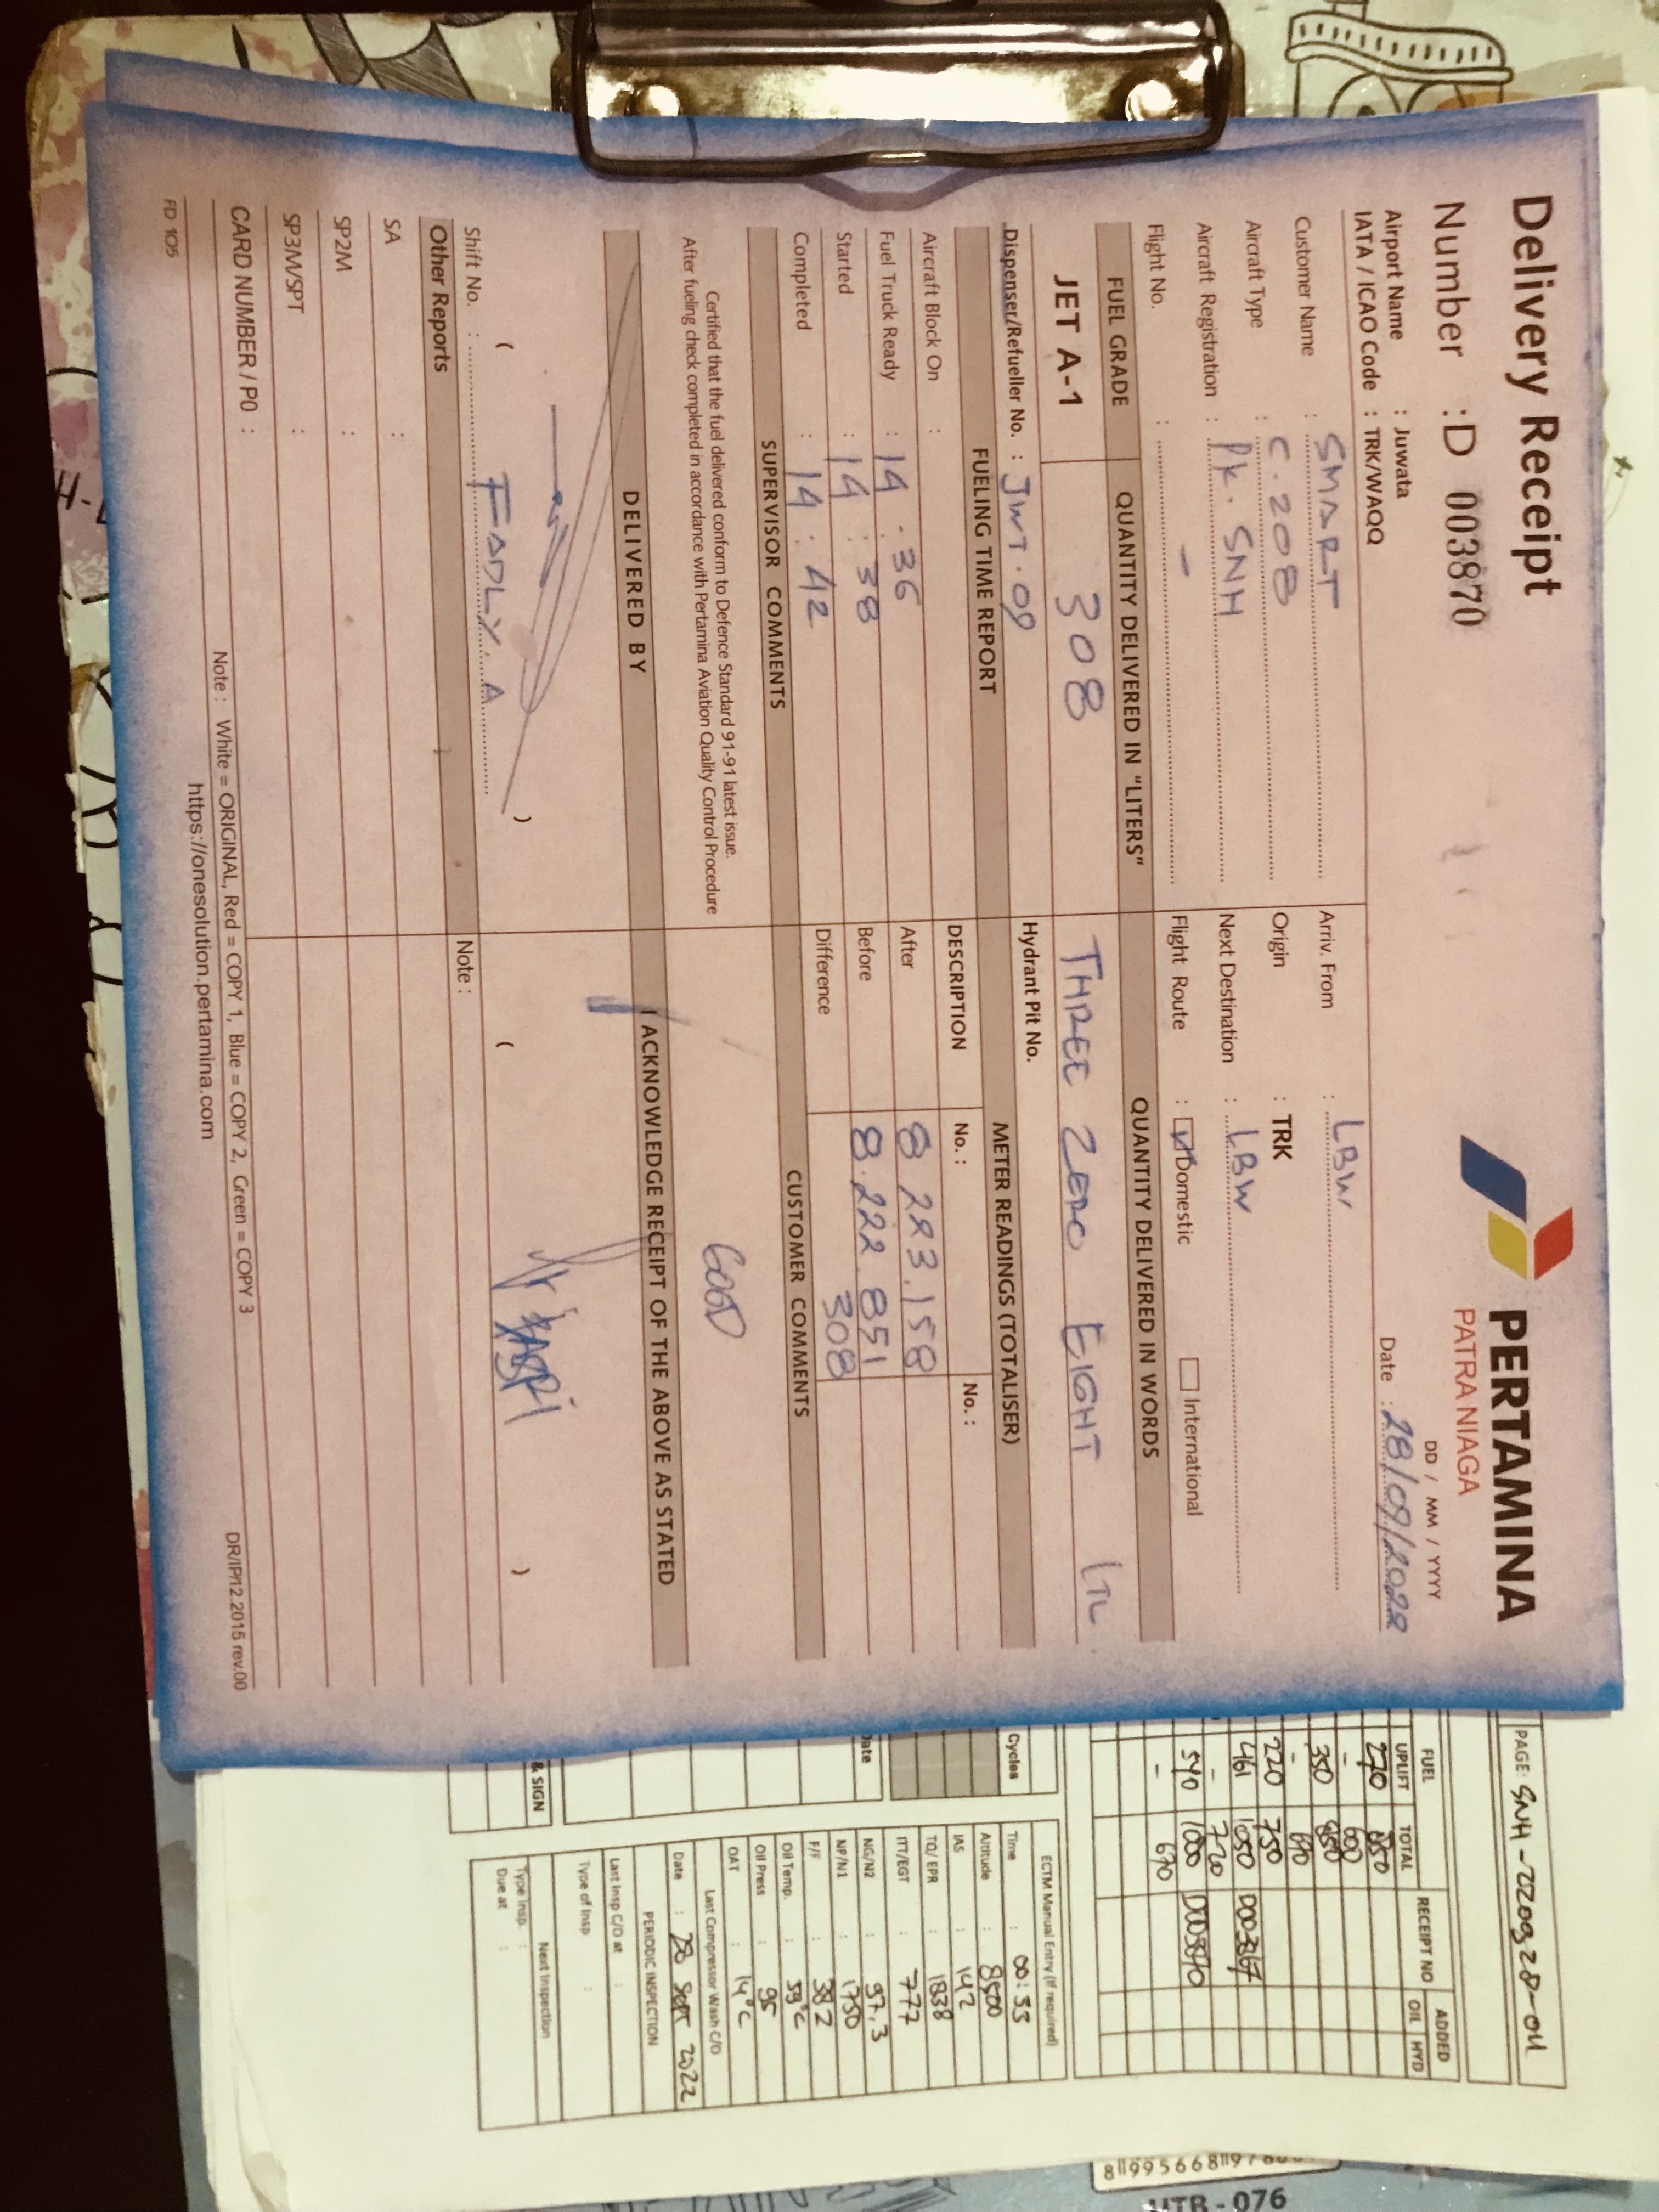 Delivery Receipt
PERTAMINA
PATRA NIAGA
Number : D 003870
DD / MM / YYYY
Airport Name : Juwata
Date : 28/09/2022
IATA / ICAO Code : TRK/WAQQ
Customer Name : SMART
Arriv. From : LBW
Aircraft Type : C.208
Origin : TRK
Aircraft Registration : PK. SNH
Next Destination : LBW
Flight No. : -
Flight Route : Domestic International
FUEL GRADE QUANTITY DELIVERED IN "LITERS" QUANTITY DELIVERED IN WORDS
JET A-1 308 THREE ZERO EIGHT LTL.
Dispenser/Refueller No. : JWT.09 Hydrant Pit No.
FUELING TIME REPORT METER READINGS (TOTALISER)
Aircraft Block On : DESCRIPTION No. : No. :
Fuel Truck Ready : 14.36 After 8 223.158
Started : 14 : 38 Before 8.222 851
Completed : 14 : 42 Difference 308
SUPERVISOR COMMENTS CUSTOMER COMMENTS
Certified that the fuel delivered conform to Defence Standard 91-91 latest issue.
After fueling check completed in accordance with Pertamina Aviation Quality Control Procedure
GOOD
DELIVERED BY I ACKNOWLEDGE RECEIPT OF THE ABOVE AS STATED
( FADLY. A ) ( )
Shift No. :
Note :
Other Reports
SA :
SP2M :
SP3M/SPT :
CARD NUMBER / PO :
Note : White = ORIGINAL, Red = COPY 1, Blue = COPY 2, Green = COPY 3
DR/IP/12.2015 rev.00
https://onesolution.pertamina.com
FD 105
PAGE: SNH-220928-04
FUEL RECEIPT NO ADDED
UPLIFT TOTAL OIL HYD
270 850
- 600
350 850
-
220 750
461 1050 D003867
- 720
540 1000 D003870
- 670
Cycles
Date
& SIGN
ECTM Manual Entry (If required)
Time : 00:55
Altitude : 8500
IAS : 142
TQ/ EPR : 1838
ITT/EGT : 777
NG/N2 : 97.3
NP/N1 : 1750
F/F : 382
Oil Temp. : 59°C
Oil Press : 95
OAT : 14°C
Last Compressor Wash C/O
Date : 28 Sept 2022
PERIODIC INSPECTION
Last Insp C/O at :
Type of Insp :
Next Inspection
Type Insp. :
Due at :
UTB - 076